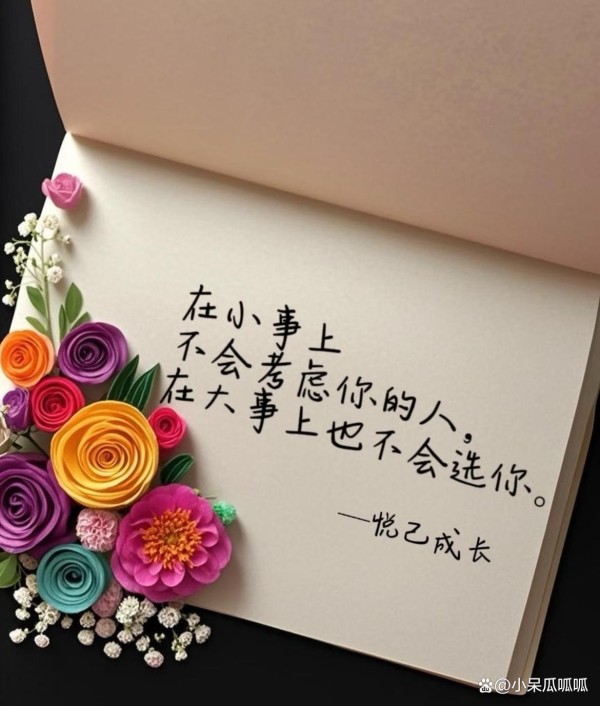 在小事上
不会考虑你的人，
在大事上也不会选你。
—悦己成长
@小呆瓜呱呱